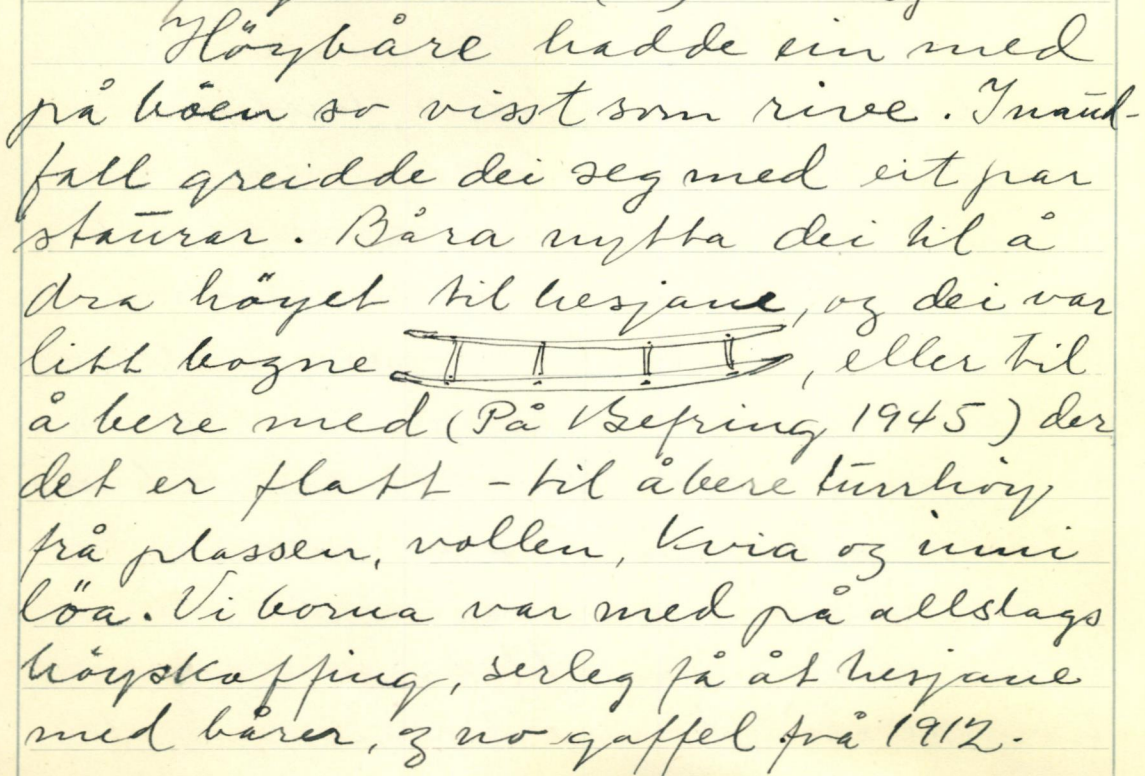 Höybåre hadde ein med
på böen so visst som rive. I naud-
fall greidde dei seg med eit par
staurar. Båra nytta dei til å
dra höyet til hesjane, og dei var
litt bogne, eller til
å bere med (På Befring 1945) der
det er flatt - til å bere turrhöy
frå plassen, vollen, Kvia og inni
löa. Vi borna var med på allslags
höyskaffing, serleg få åt hesjane
med bårer, og no gaffel frå 1912.